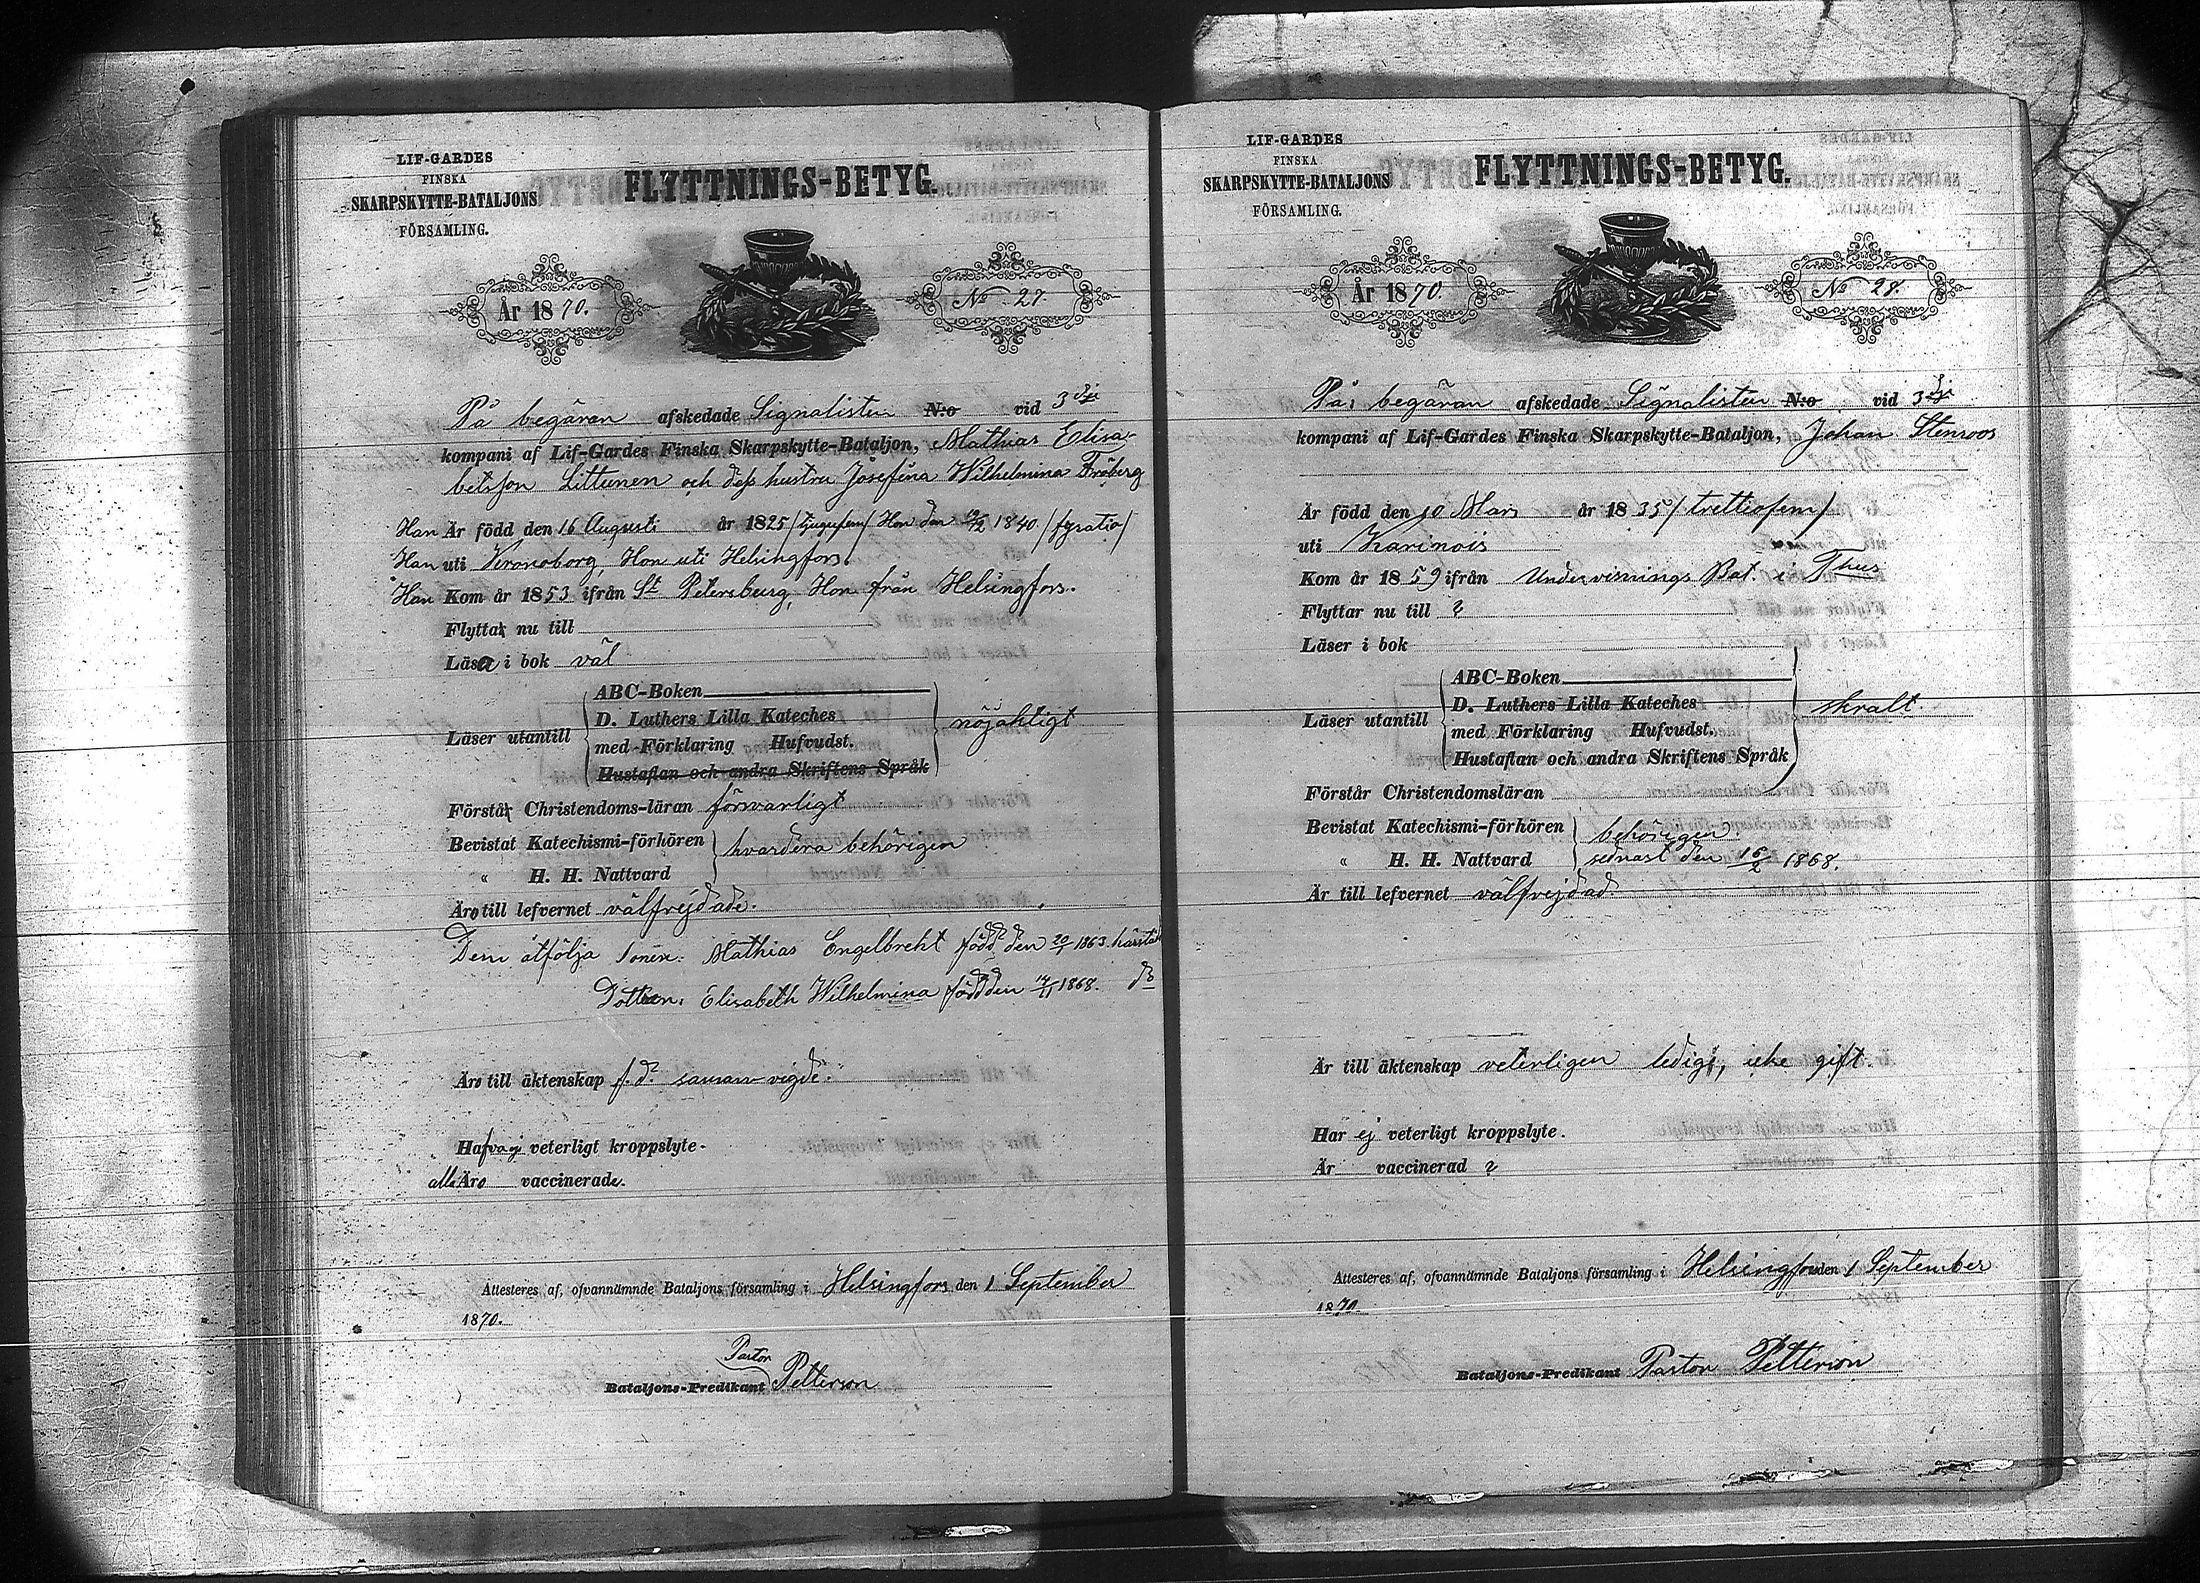 LIF-GARDES
FINSKA
SKARPSKYTTE-BATALJONS
FÖRSAMLING.
FLYTTNINGS-BETYG.
År 1870.
No 27.
På begäran afskedade Signalisten N:o vid 3dje
kompani af Lif-Gardes Finska Skarpskytte-Bataljon, Mathias Elisa-
betsson Littunen och dess hustru Josefina Wilhelmina Fröberg
Han Är född den 16 Augusti år 1825 /tjugufem/ Hon den 1840 /fyratio/
Han uti Kronoborg, Hon uti Helsingfors.
Han Kom år 1853 ifrån St Petersburg, Hon från Helsingfors.
Flytta nu till
Läsa i bok väl
Läser utantill
ABC-Boken
D. Luthers Lilla Kateches
med Förklaring Hufvudst.
Hustaflan och andra Skriftens Språk
nöjaktigt
Förstå Christendoms-läran försvarligt
Bevistat Katechismi-förhören
" H. H. Nattvard
hvardera behörigen
Äro till lefvernet välfrejdade.
Dem åtfölja sonen: Mathias Engelbrekt född den 20/1 1863. härstäd
Dottern: Elisabeth Wilhelmina född den 14/11 1868. do
Äro till äktenskap f. d. samanvigde.
Hafva ej veterligt kroppslyte.
alla Äro vaccinerade.
Attesteres af, ofvannämnde Bataljons församling i Helsingfors den 1 September
1870.
Pastor
Bataljons-Predikant Petterson
LIF-GARDES
FINSKA
SKARPSKYTTE-BATALJONS
FÖRSAMLING.
FLYTTNINGS-BETYG.
År 1870.
No 28.
På begäran afskedade Signalisten N:o vid 3dje
kompani af Lif-Gardes Finska Skarpskytte-Bataljon, Johan Stenroos
Är född den 10 Mars år 1835 /trettiofem/
uti Karinois
Kom år 1859 ifrån Undervisnings Bat. i Thus
Flyttar nu till ?
Läser i bok
Läser utantill
ABC-Boken
D. Luthers Lilla Kateches
med Förklaring Hufvudst.
Hustaflan och andra Skriftens Språk
skralt.
Förstår Christendomsläran
Bevistat Katechismi-förhören
" H. H. Nattvard
behörigen
sednast den 16/2 1868.
Är till lefvernet välfrejdad
Är till äktenskap veterligen ledig, icke gift.
Har ej veterligt kroppslyte.
Är vaccinerad ?
Attesteres af, ofvannämnde Bataljons församling i Helsingfors den 1 September
1870.
Bataljons-Predikant Pastor Petterson